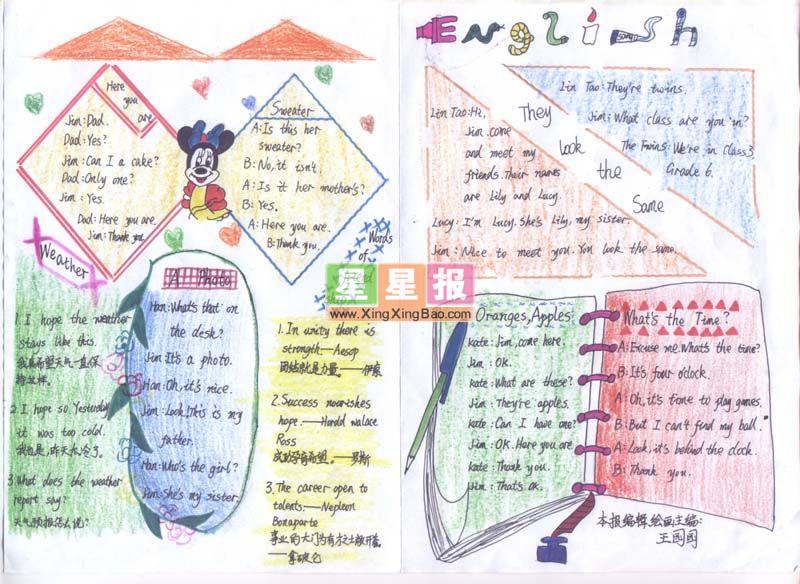 Here
you
are
Jim: Dad.
Dad: Yes?
Jim: Can I a cake?
Dad: Only one?
Jim: Yes.
Dad: Here you are.
Jim: Thank you.
Sweater
A: Is this her
sweater?
B: No, it isn't.
A: Is it her mother's?
B: Yes.
A: Here you are.
B: Thank you.
Weather
1. I hope the weather
stays like this.
我真希望天气一直保
持这样.
2. I hope so. Yesterday
it was too cold.
我也是,昨天太冷了.
3. What does the weather
report say?
天气预报怎么说?
A Photo
Han: What's that on
the desk?
Jim: It's a photo.
Han: Oh, it's nice.
Jim: Look! This is my
father.
Han: Who's the girl?
Jim: She's my sister.
Words
of
1. In unity there is
strength.——Aesop
团结就是力量。——伊索
2. Success nourishes
hope.——Harold wallace
Ross
成功孕育希望。——罗斯
3. The career open to
talents.——Nepleon
Bonaparte
事业的大门为有才之士敞开着。
——拿破仑
星星报
www.XingXingBao.com
English
They
look
the
Same
Lin Tao: Hi,
Jim. come
and meet my
friends. Their names
are Lily and Lucy.
Lucy: I'm Lucy. She's Lily, my sister.
Jim: Nice to meet you. You look the same.
Lin Tao: They're twins.
Jim: What class are you in?
The Twins: We're in class3,
Grade 6.
Oranges, Apples:
kate: Jim, come here.
Jim: OK.
kate: What are these?
Jim: They're apples.
kate: Can I have one?
Jim: OK. Here you are
kate: Thank you.
Jim: That's OK.
What's the Time?
A: Excuse me. What's the time?
B: It's four o'clock.
A: Oh, it's time to play games.
B: But I can't find my ball.
A: Look, it's behind the clock.
B: Thank you.
本报编辑绘画主编:
王园园